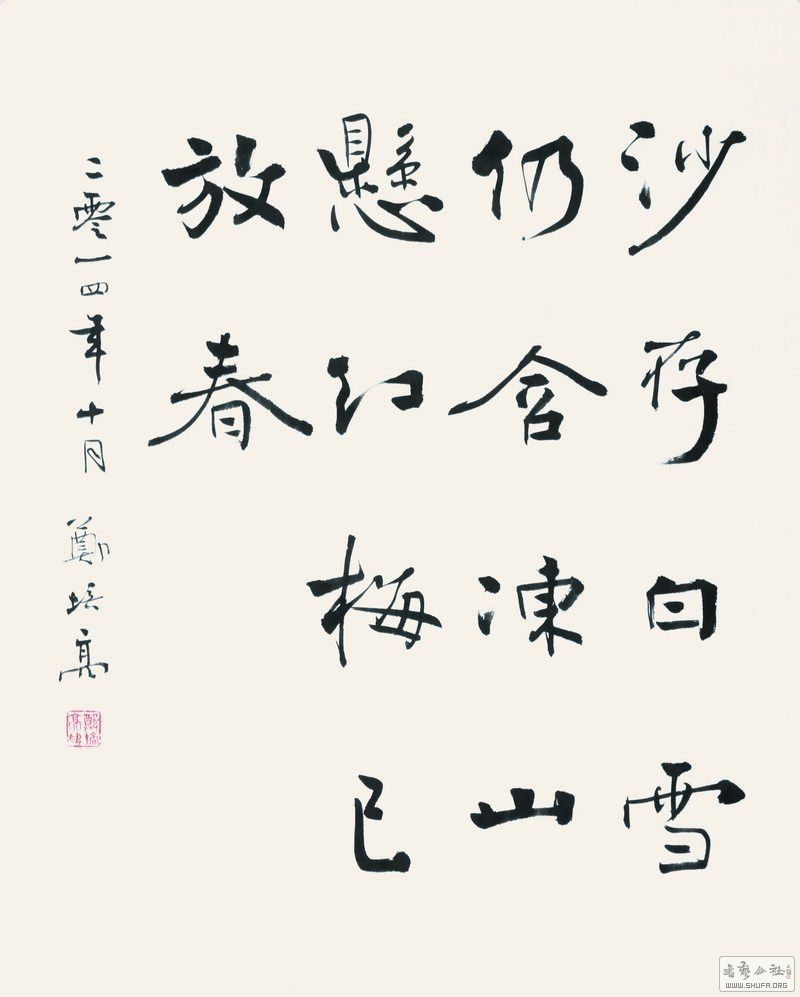 沙存白雪
仍含凍山
懸紅梅已
放春
二零一四年十月 鄭培亮
書藝公社
WWW.SHUFA.ORG